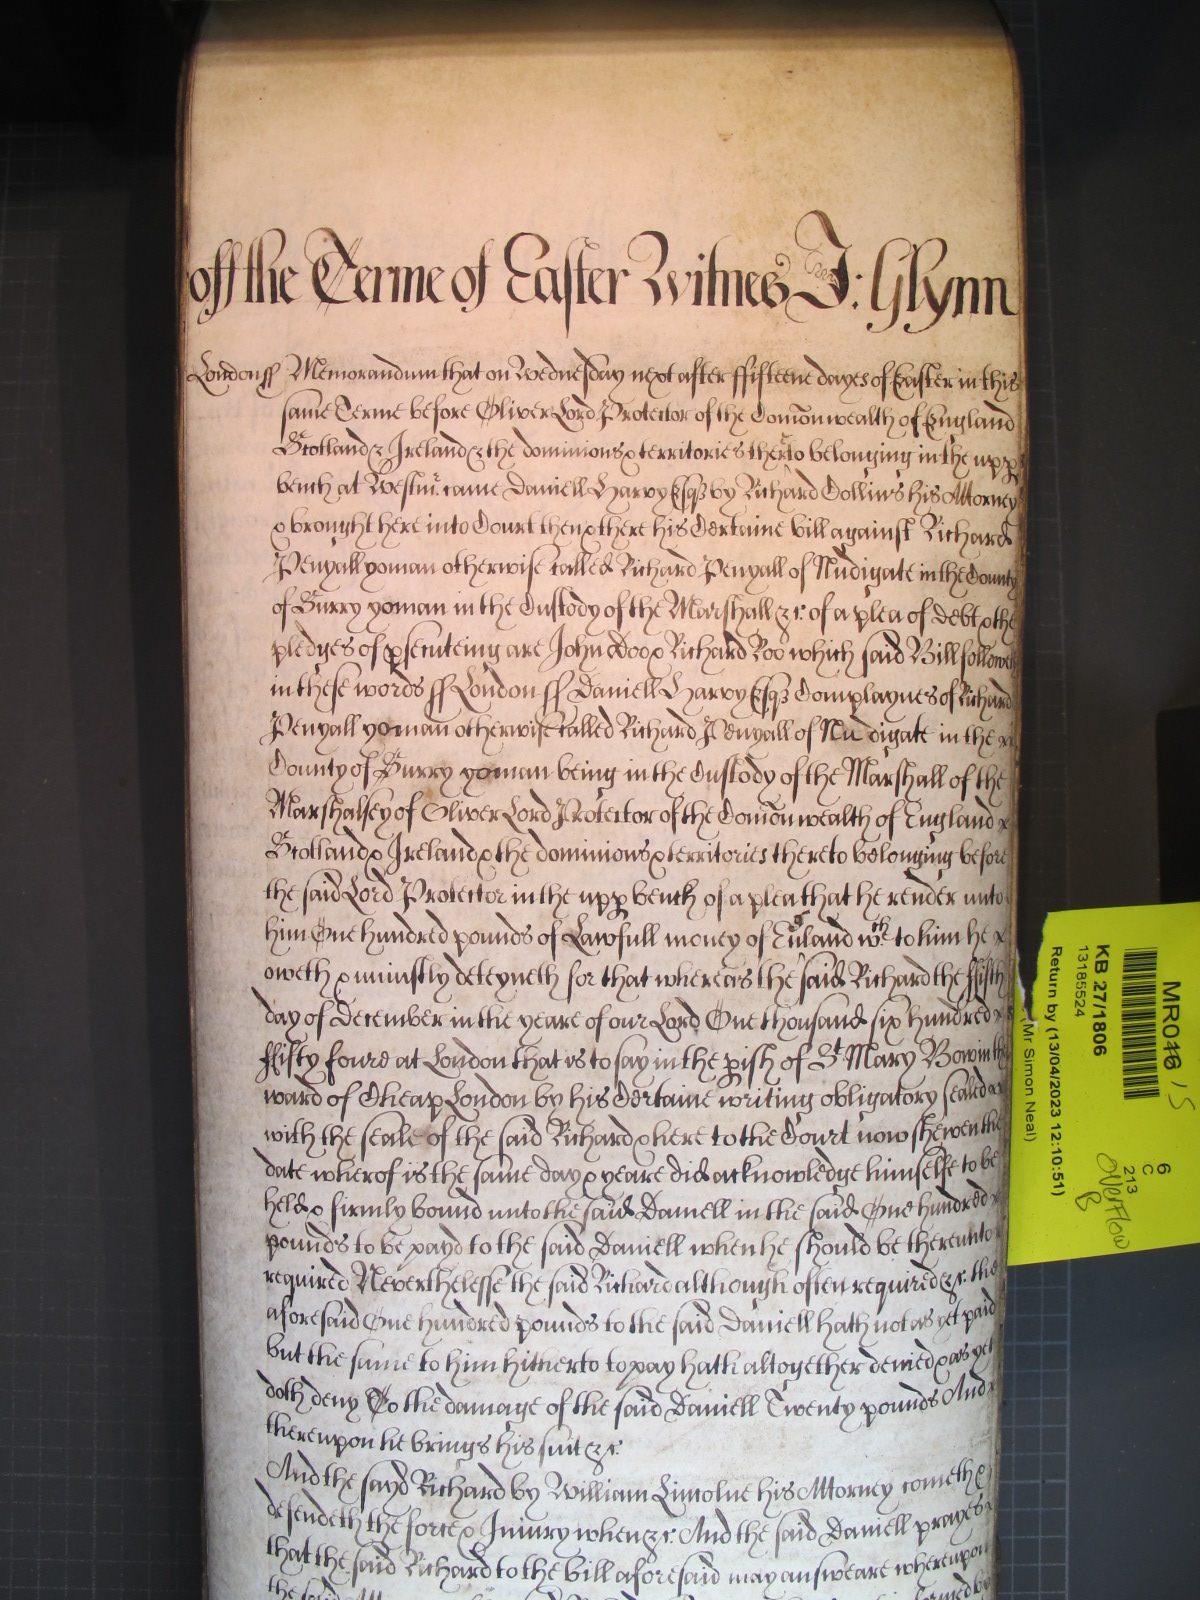 off the Terme of Easter Witnes J: Glynn
London ff Memorandum that on Wednesday next after ffifteene dayes of Easter in this
same Terme before Oliver Lord Protector of the Comonwealth of England
Scotland & Ireland & the dominions & territories therto belonging in the upp
bench at Westmr. came Daniell Harvy Esqr by Richard Collins his Attorney
& brought here into Court then & there his Certaine bill against Richard
Penyall yoman otherwise called Richard Penyall of Nudigate in the County
of Surry yoman in the Custody of the Marshall &c. of a plea of debt & the
pledges of psecuteing are John Doo & Richard Roo which said Bill followeth
in these words ff London ff Daniell Harvy Esqr Complaynes of Richard
Penyall yoman otherwise called Richard Penyall of Nudigate in the
County of Surry yoman being in the Custody of the Marshall of the
Marshalsey of Oliver Lord Protector of the Comonwealth of England &
Scotland & Ireland & the dominions & territories thereto belonging before
the said Lord Protector in the upp bench of a plea that he render unto
him One hundred pounds of Lawfull money of England wch to him he
oweth & uniustly deteyneth for that whereas the said Richard the ffifth
day of December in the yeare of our Lord One thousand six hundred
ffifty foure at London that is to say in the pish of St Mary Bow in the
ward of Cheap London by his Certaine writing obligatory sealed
with the seale of the said Richard & here to the Court now shewen the
date wherof is the same day & yeare did acknowledge himselfe to be
held & firmly bound unto the said Daniell in the said One hundred
pounds to be payd to the said Daniell when he should be thereunto
required Neverthelesse the said Richard although often required &c. the
aforesaid One hundred pounds to the said Daniell hath not as yet paid
but the same to him hitherto to pay hath altogether denied & as yet
doth deny To the damage of the said Daniell Twenty pounds And
thereupon he brings his suit &c.
And the sayd Richard by William Lincolne his Attorney cometh &
defendeth the force & Iniury when &c. And the said Daniell prayes
that the said Richard to the bill aforesaid may answeare whereupon
the said
MR016 / 5
KB 27/1806
13185524
Return by (13/04/2023 12:10:51)
(Mr Simon Neal)
6
C
213
Overflow
B